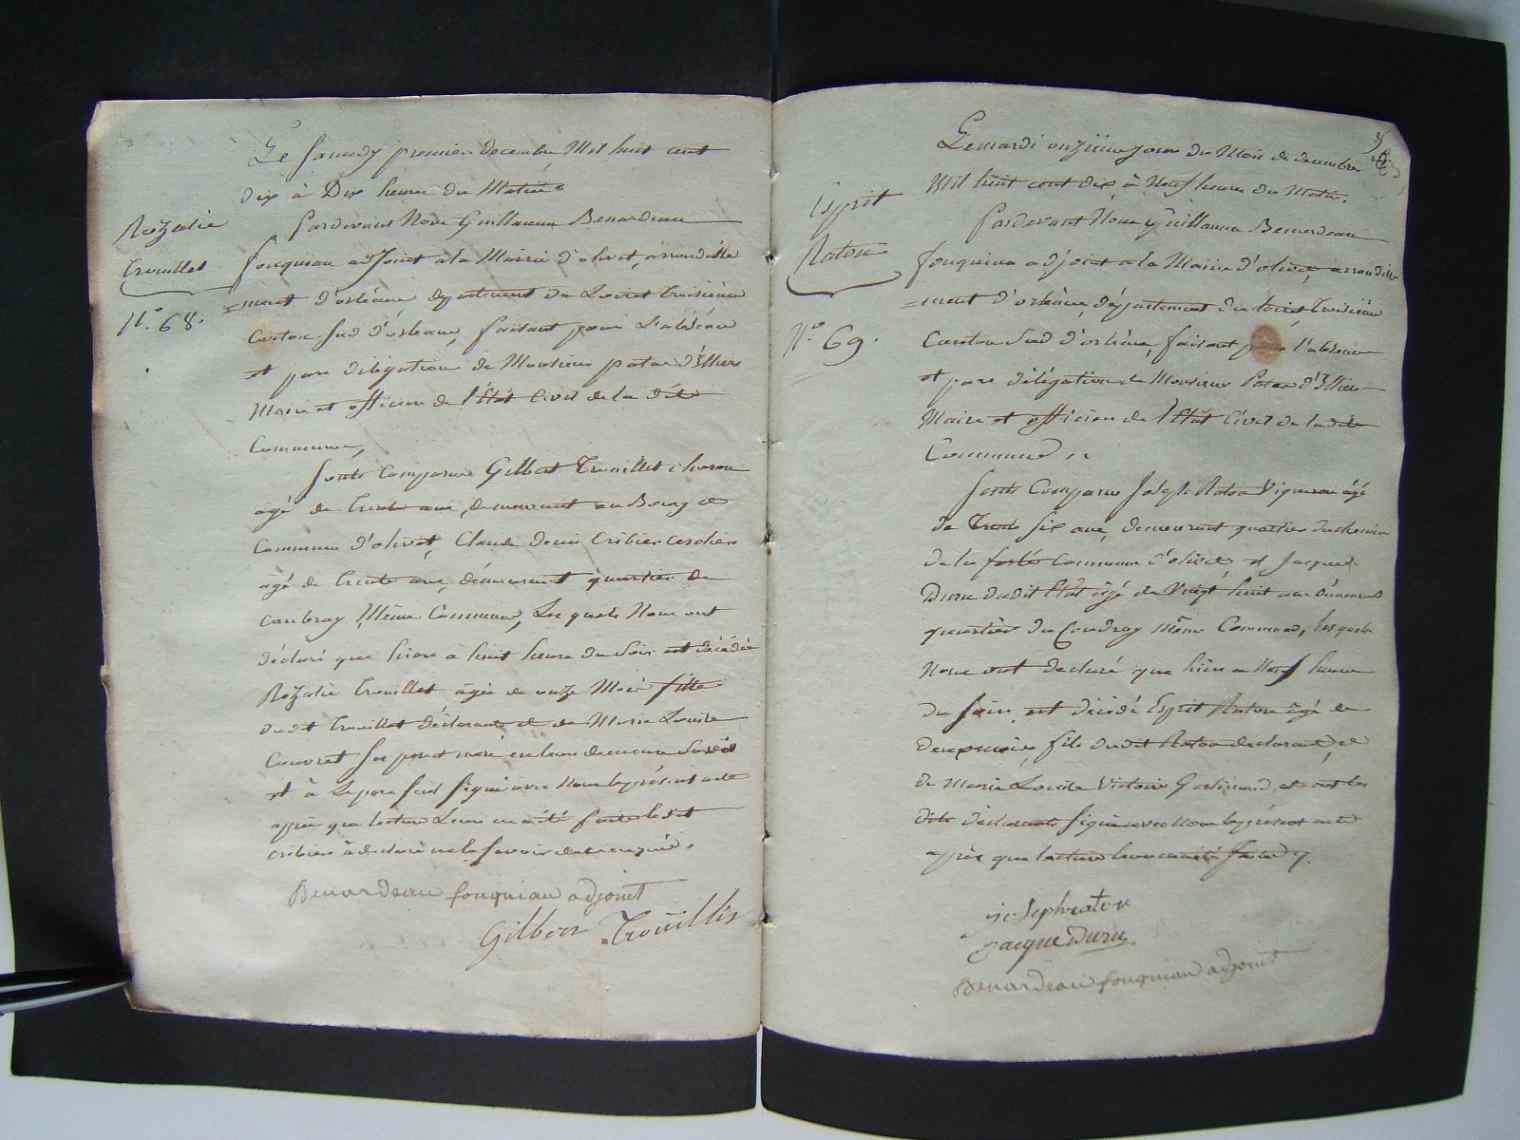 Rozalie
Trouillet
N.° 68.
Le samedy premier decembre Mil huit cent
dix à Dix heures du Matin
Pardevant Nous Guillaume Benardeau
fouquiau adjoint a la Mairie d'olivet, arrondisse
=ment d'orléans departement du Loiret troisième
Canton Sud d'orleans, faisant pour L'absence
et par délégation de Monsieur patas d'Illiers
Maire et officier de l'État Civil de la dite
Commune,
Sont Comparus Gilbert Trouillet
agé de trente ans, demeurant au Bourg et
Commune d'olivet, Claude denis Cribier
agé de trente ans, demeurant quartier du
Même Commune, Lesquels Nous ont
déclaré que hiere a huit heure du Soir est décédée
Rozalie Trouillet âgée de onze Mois fille
dudit Trouillet déclarant et de Marie Louise
et à Le pere seul signé avec Nous le présent acte
après que lecture Leur en a été faite ledit
Cribier à déclaré ne le savoir de ce enquis.
Benardeau fouquiau adjoint
Gilbert Trouillis
Esprit
Raton
N.° 69.
Le mardi onzieme jour du Mois de decembre
Mil huit cent dix à Neuf heures du Matin.
Pardevant Nous Guillaume Benardeau
fouquiau adjoint a la Mairie d'olivet, arrondisse
=ment d'orléans, département du loiret, troisième
Canton Sud d'orléans, faisant pour l'absence
et par délégation de Monsieur Patas d'Illiers
Maire et officier de l'État Civil de la dite
Commune,
Sont Comparus Joseph Raton Vigneron âgé
de Trente six ans, demeurant quartier du chemin
de la ferté Commune d'olivet et Jacques
Duru dudit État âgé de Vingt huit ans demeurant
quartier du Coudray Même Commune, lesquels
Nous ont declaré que hier a Neuf heures
du soir est décédé Esprit Raton âgé de
deux mois, fils dudit Raton declarant, et
de Marie Louise Victoire et ont les
dits déclarants signé avec Nous le présent acte
après que lecture leur en a été faite.
joseph raton
Jacque Duru
Benardeau fouquiau adjoint